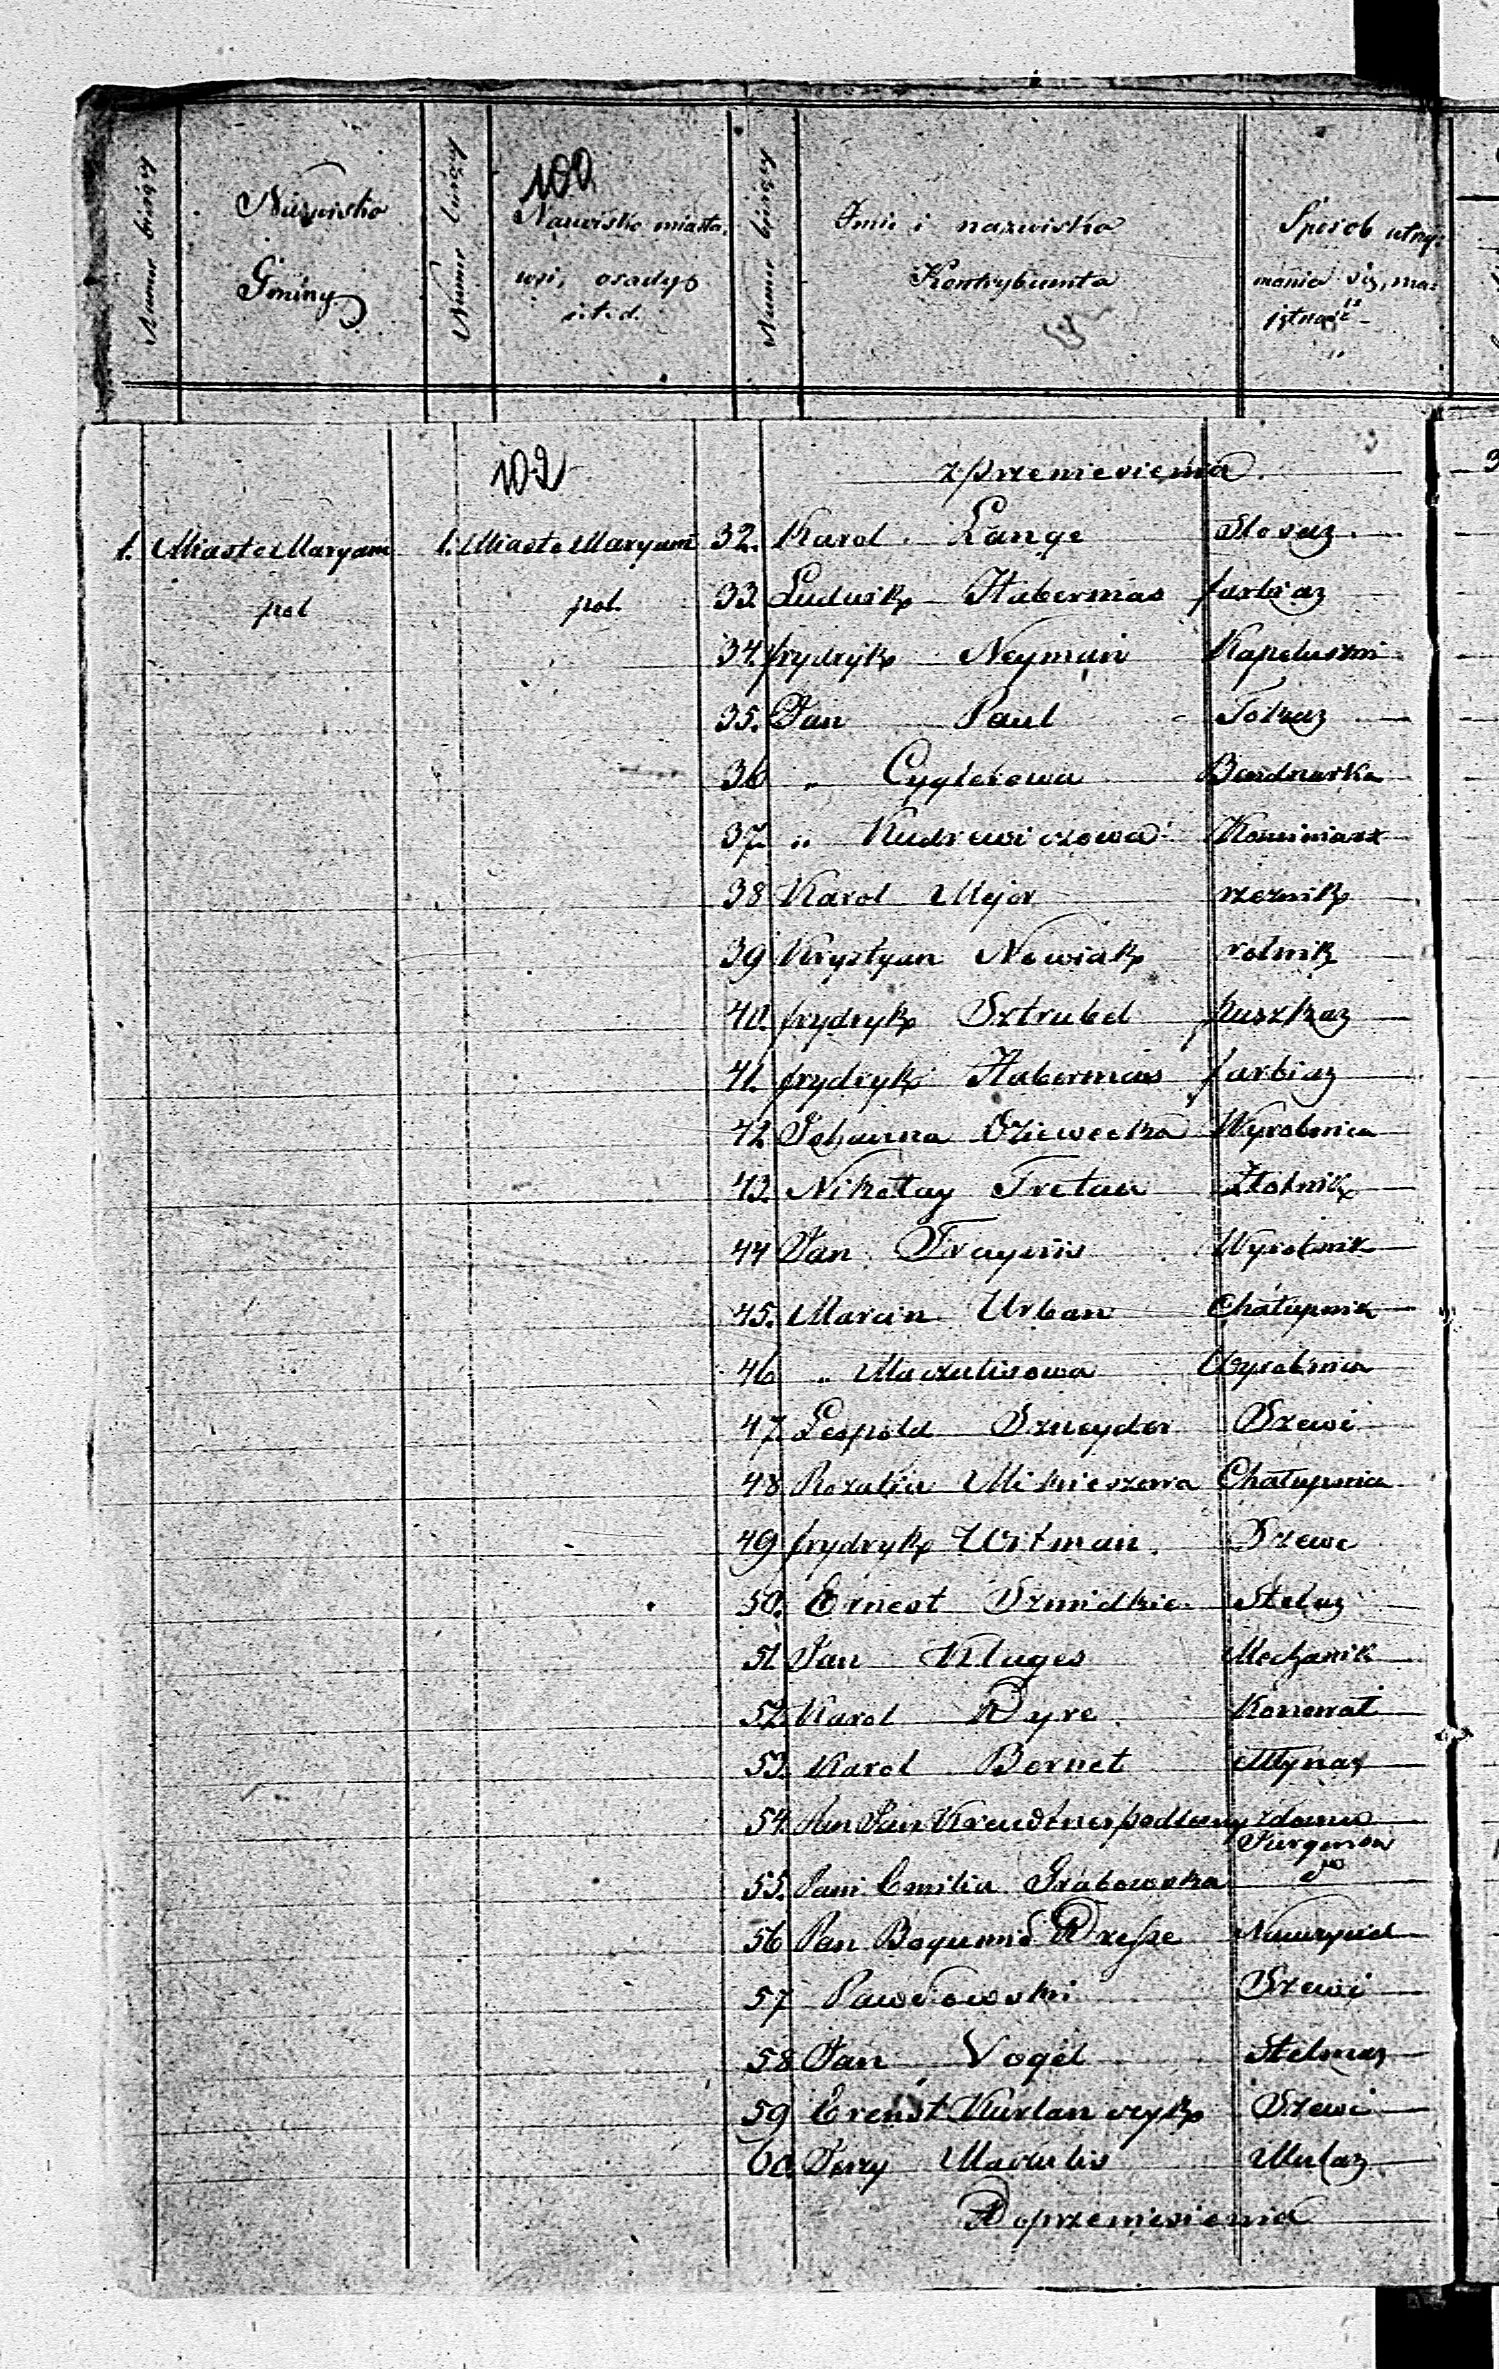 100
Numer bieżący
Nazwisko Gminy
Numer bieżący
Nazwisko miasta, wsi, osady i t. d.
Numer bieżący
Imie i nazwisko Kontrybuenta
Sposób utrzymania się, majętność
102
z przeniesienia
1. Miasto Maryampol 1. Miasto Maryampol 32. Karol Lange Slosaz
33 Ludwik Habermas farbiaz
34 frydryk Neyman Kapeluszni
35. Jan Paul Tokaz
36 " Cyglerowa Bendnarka
37. " Kudrewiczowa Kominiarz
38 Karol Mejer rzeznik
39 Krystyan Nowiak rolnik
40. frydryk Sztrubel puszkaz
41. frydryk Habermas farbiaz
42 Johanna Dziewecka Wyrobnica
43. Nikołay Tretau Złotnik
44 Jan Trayinis Wyrobnik
45. Marcin Urban Chałupnik
46 " Maczulisowa Wyrobnica
47. Leopold Szneyder Szewc
48 Rozalia Mikieszowa Chałupnica
49 frydryk Witman Szewc
50. Ernest Szmidkie Stolaz
51. Jan Kluges Mechanik
52. Karol Dyre Konował
53. Karol Bernet Młynaz
54. Pan Jan Kreudtner podleśny z domu Jurgensa
55. Pani Emilia Grabowska do
56 Pan Bogumił Dresze Nauczyciel
57 Pawłowski Szewc
58 Jan Vogel Stelmaz
59 Erenst Kurlanczyk Szewc
60. Jerzy Maczulis Mulaz
Do przeniesienia